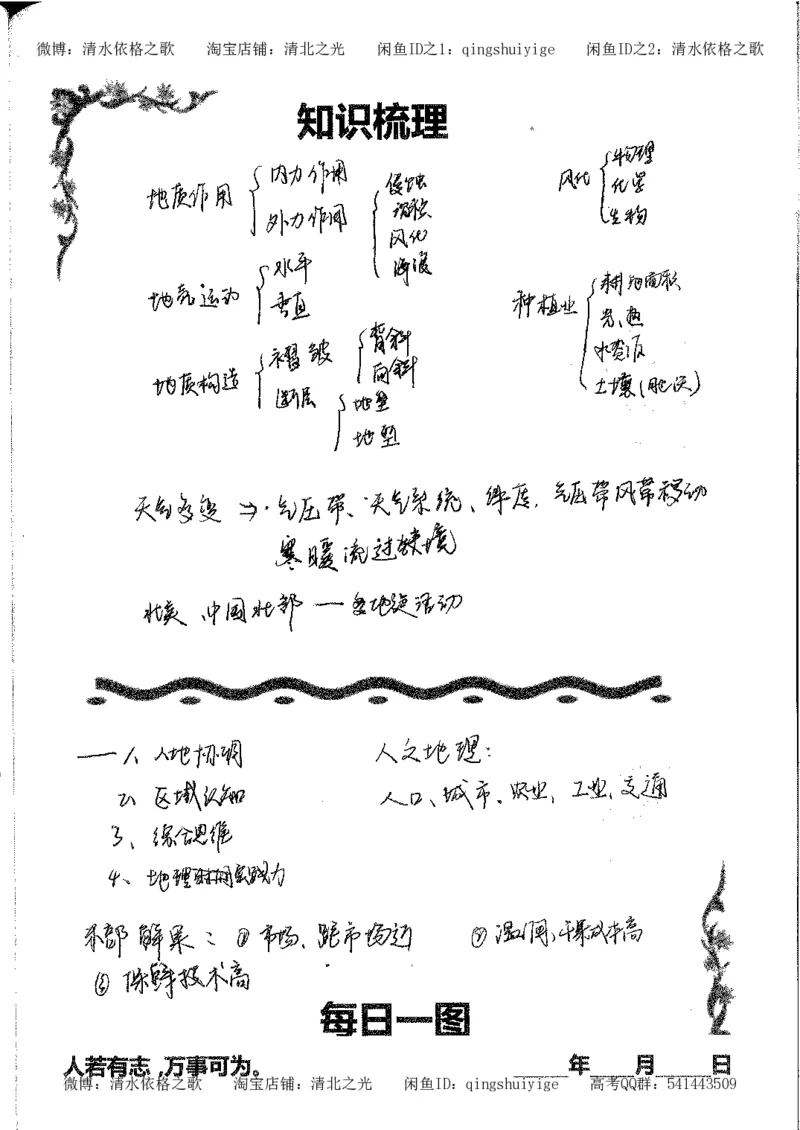 微博：清水依格之歌 淘宝店铺：清北之光 闲鱼ID之1：qingshuiyige 闲鱼ID之2：清水依格之歌
知识梳理
地质作用 内力作用
外力作用
侵蚀
沉积
风化
海浪
风化 物理
化学
生物
地壳运动 水平
垂直
种植业 耕地面积
光、热
水资源
土壤(肥沃)
地质构造 褶皱
断层
背斜
向斜
地垒
地堑
天气多变 ⇒·气压带、天气系统、纬度,气压带风带移动
寒暖流过境
北美、中国北部
一1、人地协调
2、区域认知
3、综合思维
4、地理时间实践力
人文地理:
人口、城市、农业、工业、交通
解果:①市场、距市场近 ②温润、干果成本高
③保鲜技术高
每日一图
人若有志,万事可为。 年 月 日
微博：清水依格之歌 淘宝店铺：清北之光 闲鱼ID：qingshuiyige 高考QQ群：541443509